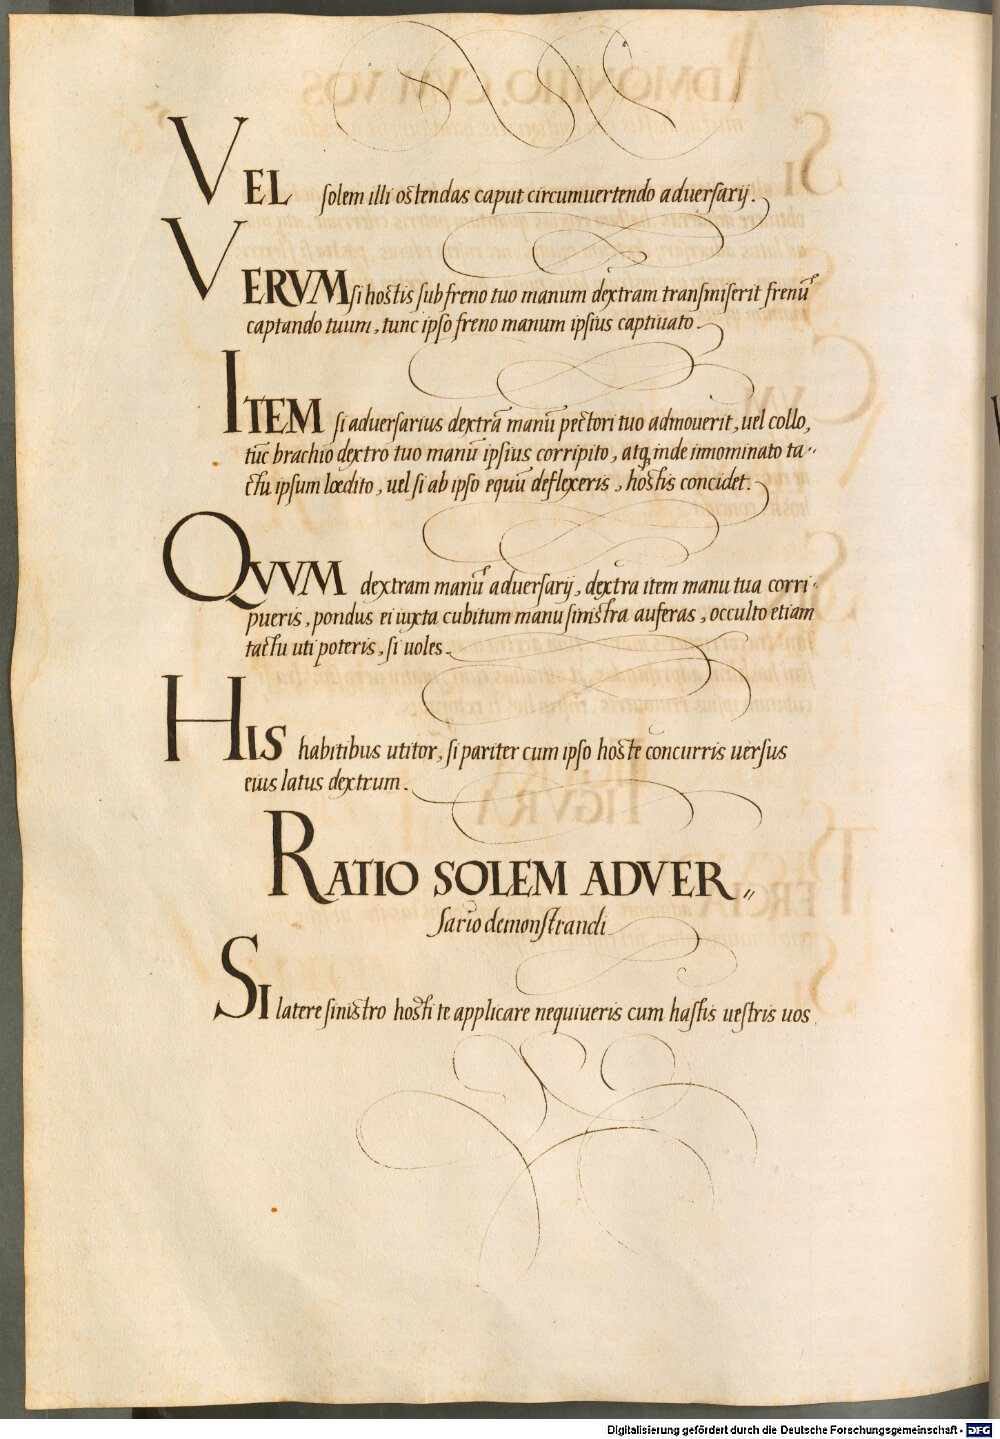 VEL solem illi ostendas caput circumuertendo aduersarij.
VERVM si hostis sub freno tuo manum dextram transmiserit frenũ
captando tuum, tunc ipso freno manum ipsius captiuato.
ITEM si aduersarius dextrã manũ pectori tuo admouerit, uel collo,
tũc brachio dextro tuo manũ ipsius corripito, atq̃ inde innominato ta〃
ctu ipsum lœdito, uel si ab ipso equũ deflexeris, hostis concidet.
QVVM dextram manũ aduersarij, dextra item manu tua corri〃
pueris, pondus ei iuxta cubitum manu sinistra auferas, occulto etiam
tactu uti poteris, si uoles.
HIS habitibus utitor, si pariter cum ipso hoste concurris uersus
eius latus dextrum.
RATIO SOLEM ADVER〃
sario demonstrandi
SI latere sinistro hosti te applicare nequiueris cum hastis uestris uos
Digitalisierung gefördert durch die Deutsche Forschungsgemeinschaft - DFG